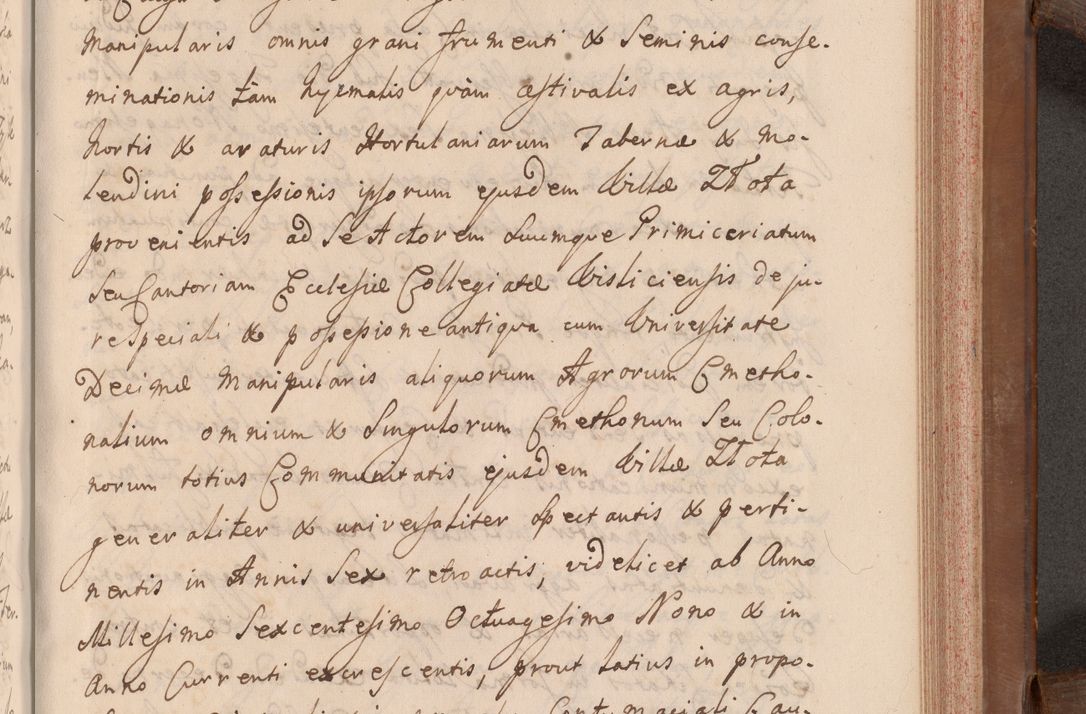 Manipularis omnis grani frumenti & Seminis conse-
minationis tàm hyemalis quàm æstivalis ex agris,
hortis & araturis Hortulaniarum Tabernæ & Mo-
lendini possessionis ipsorum ejusdem Villæ Złota
provenientis ad Se Actorem Suumque Primiceriatum
Seu Cantoriam Ecclesiæ Collegiatæ Visliciensis de ju-
re Speciali & possessione antiqva cum Universitate
Decimæ Manipularis aliquorum Agrorum Cmetho-
nalium omnium & Singulorum Cmethonum Seu Colo-
norum totius Communitatis ejusdem Villæ Złota
generaliter & universaliter Spectantis & perti-
nentis in Annis Sex retroactis, videlicet ab Anno
Millesimo Sexcentesimo Octuagesimo Nono & in
Anno Currenti excrescentis, prout latius in propo-